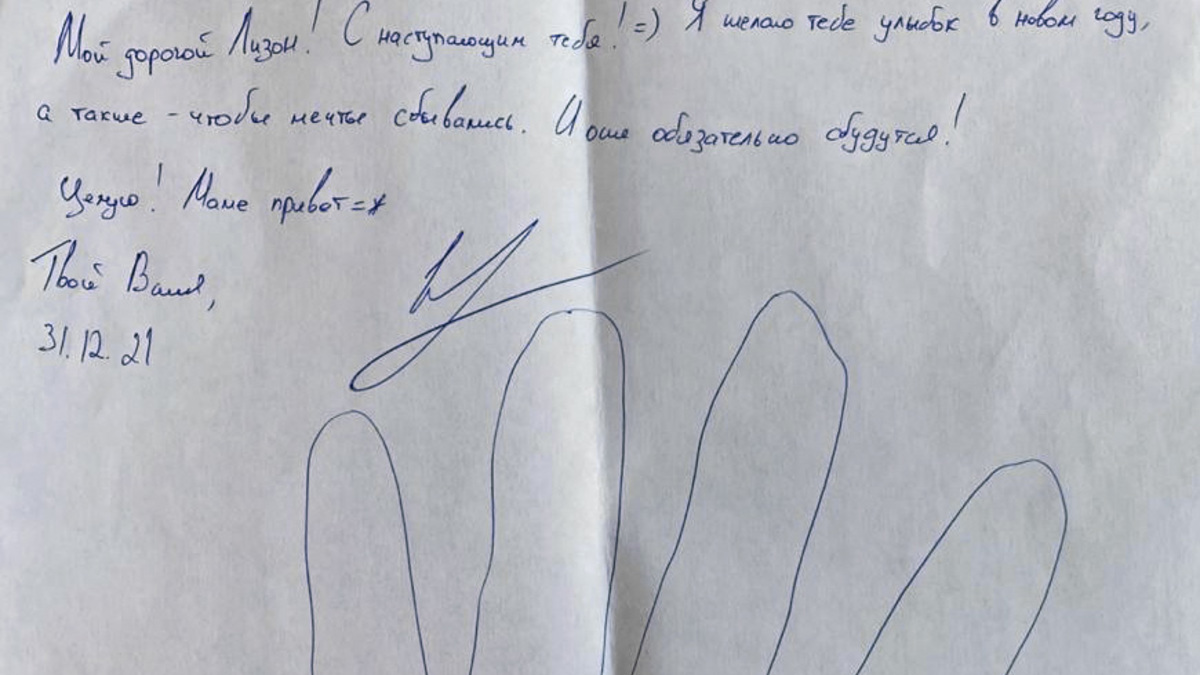 Мой дорогой Лизон! С наступающим тебя! =) Я желаю тебе улыбок в новом году,
а также - чтобы мечты сбывались. И они обязательно сбудутся!
Целую! Маме привет =*
Твой Ваня,
31.12.21